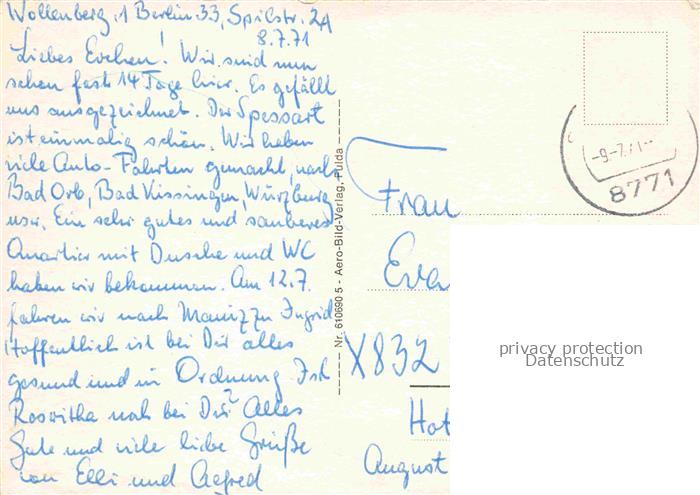 Wollenberg, 1 Berlin 33, Spilstr. 2A
8.7.71
Liebes Evchen! Wir sind nun
schon fast 14 Tage hier. Es gefällt
uns ausgezeichnet. Der Spessart
ist einmalig schön. Wir haben
viele Auto-Fahrten gemacht, nach
Bad Orb, Bad Kissingen, Würzburg
usw. Ein sehr gutes und sauberes
Quartier mit Dusche und WC
haben wir bekommen. Am 12.7.
fahren wir nach Mainz zu Ingrid
Hoffentlich ist bei Dir alles
gesund und in Ordnung. Ist
Roswitha noch bei Dir? Alles
Gute und viele liebe Grüße
von Elli und Alfred
Nr. 610690 5 - Aero-Bild-Verlag, Fulda
-9-7.71--
8771
Frau
Eva
X832
Hot
August
privacy protection
Datenschutz